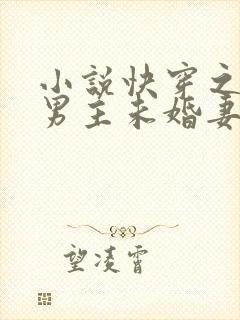 小说快穿之
男主未婚妻
望凌霄